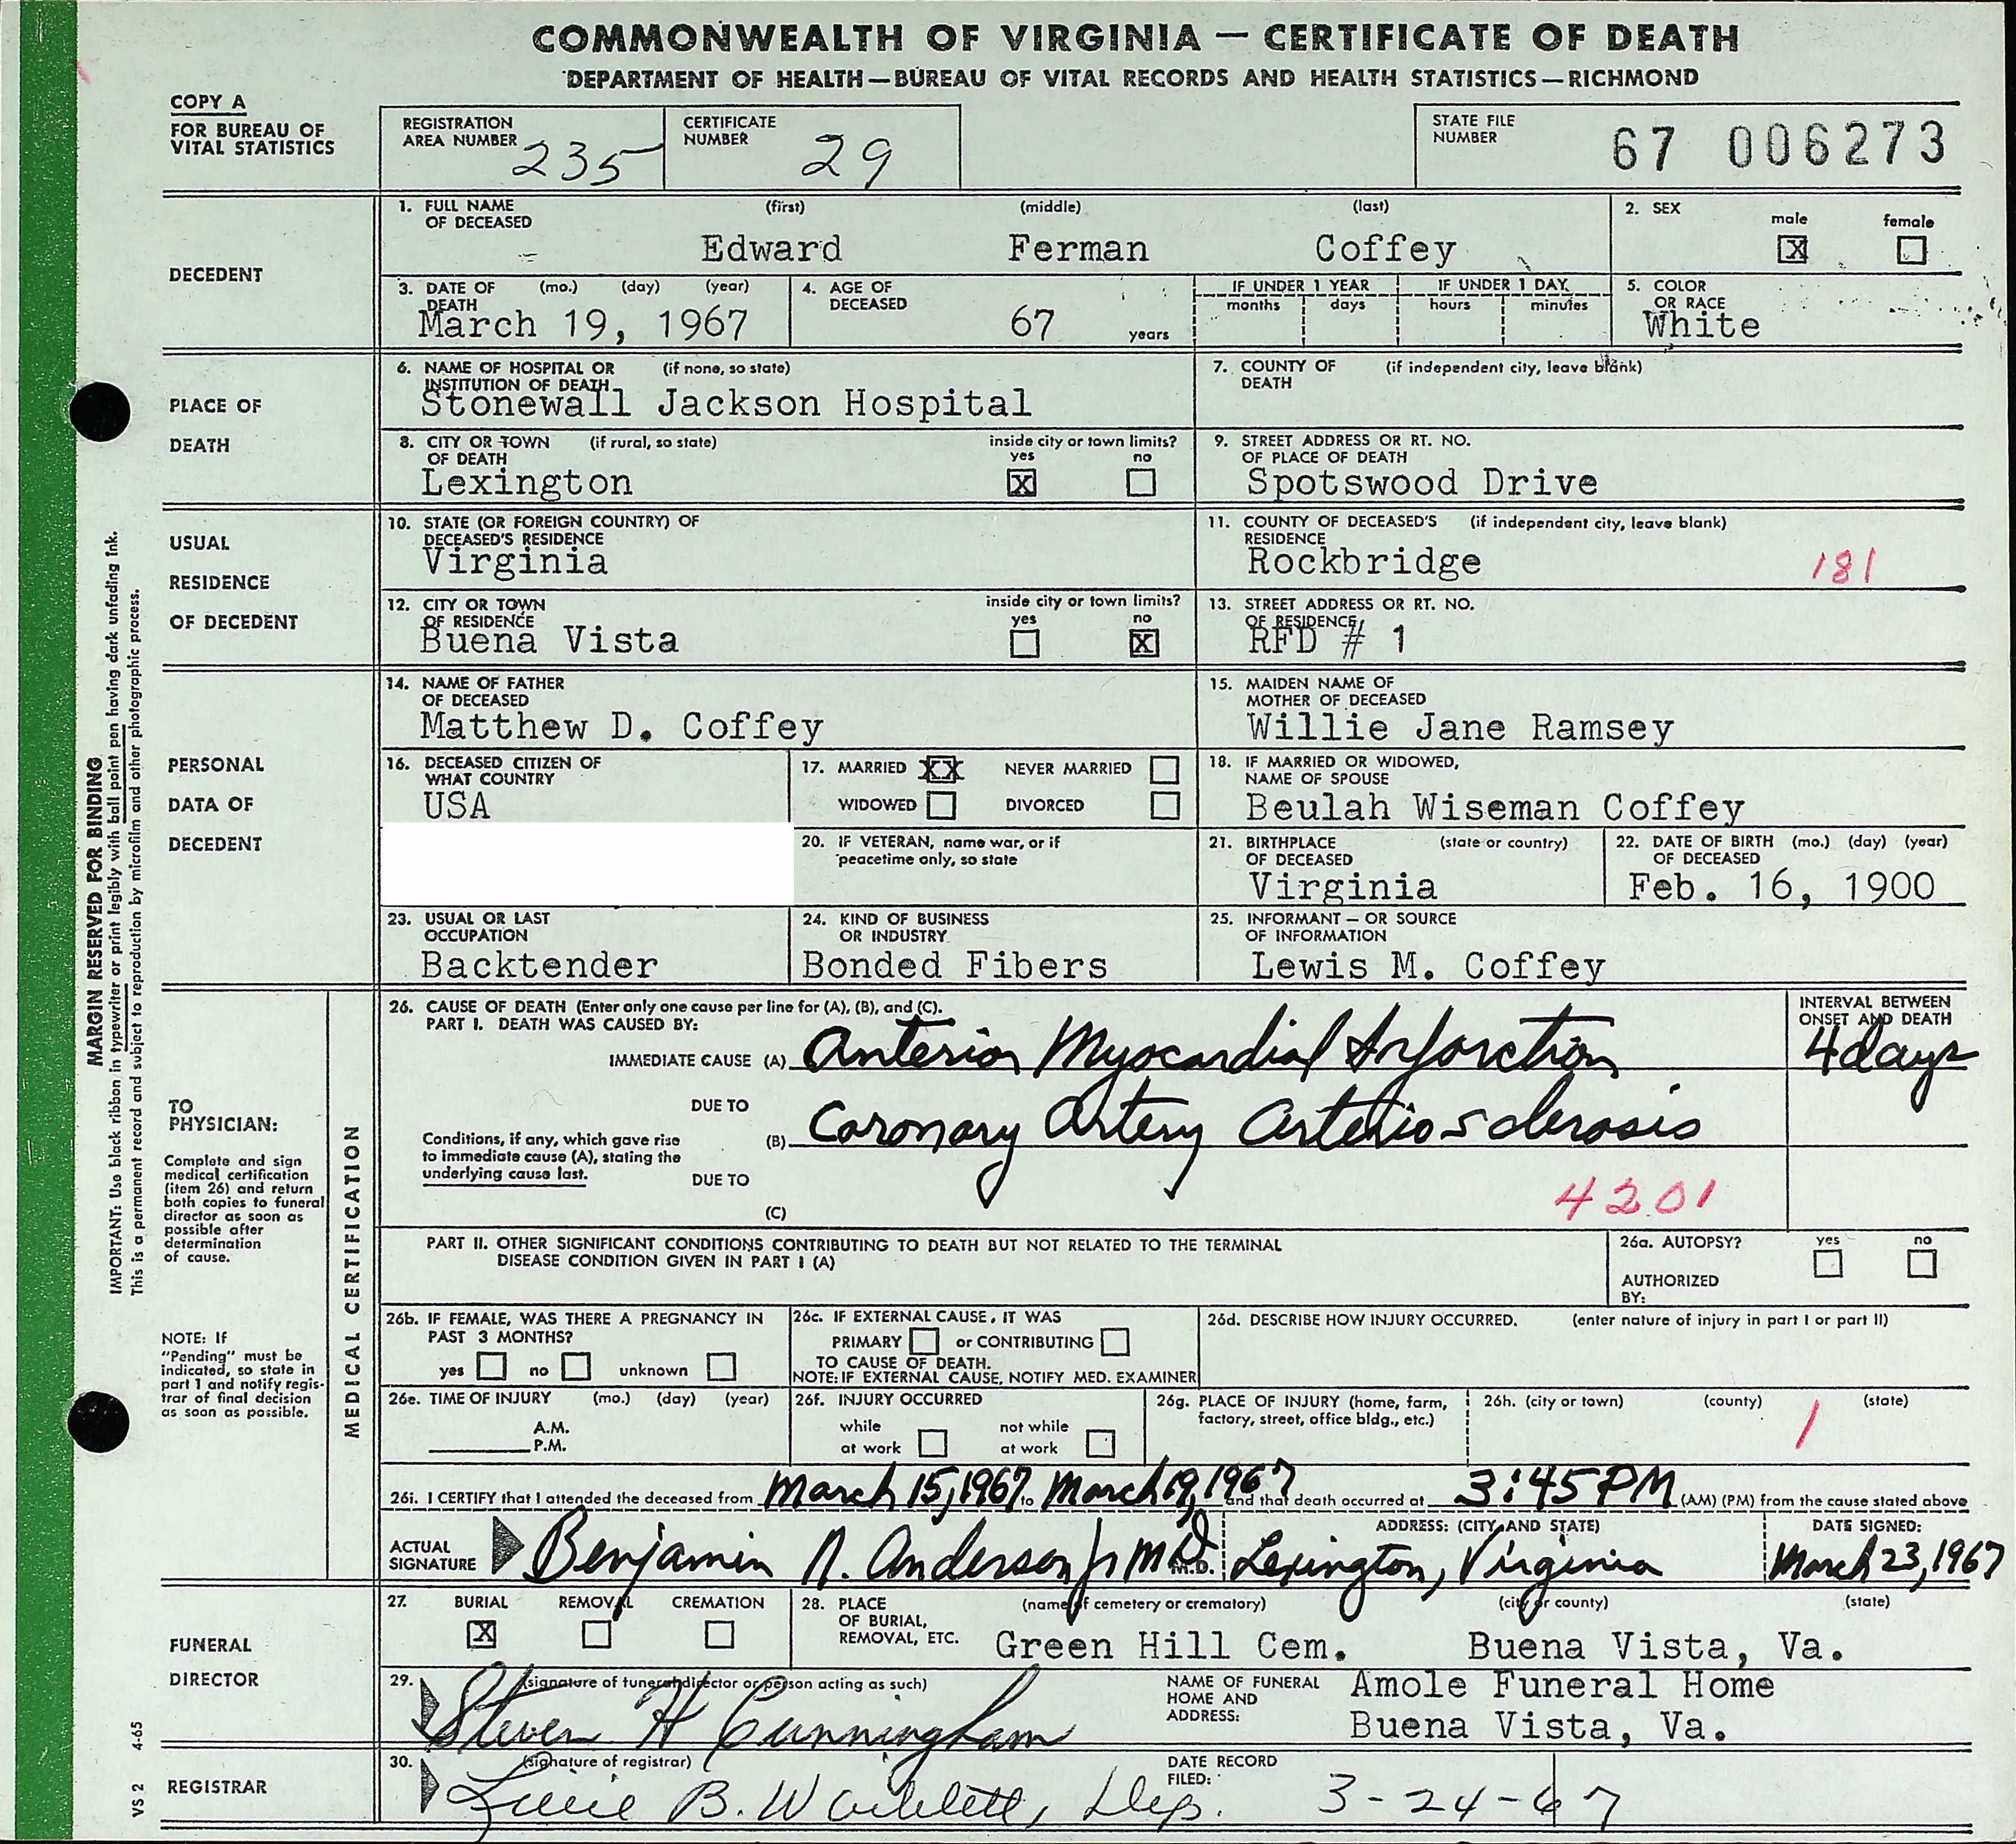 COMMONWEALTH OF VIRGINIA — CERTIFICATE OF DEATH
DEPARTMENT OF HEALTH—BUREAU OF VITAL RECORDS AND HEALTH STATISTICS—RICHMOND
COPY A
FOR BUREAU OF
VITAL STATISTICS
REGISTRATION
AREA NUMBER 235
CERTIFICATE
NUMBER 29
STATE FILE
NUMBER 67 006273
DECEDENT
1. FULL NAME (first) (middle) (last)
OF DECEASED
Edward Ferman Coffey
2. SEX
male female
X
3. DATE OF (mo.) (day) (year)
DEATH
March 19, 1967
4. AGE OF
DECEASED
67 years
IF UNDER 1 YEAR IF UNDER 1 DAY
months days hours minutes
5. COLOR
OR RACE
White
PLACE OF
DEATH
6. NAME OF HOSPITAL OR (if none, so state)
INSTITUTION OF DEATH
Stonewall Jackson Hospital
7. COUNTY OF (if independent city, leave blank)
DEATH
8. CITY OR TOWN (if rural, so state) inside city or town limits?
OF DEATH yes no
Lexington X
9. STREET ADDRESS OR RT. NO.
OF PLACE OF DEATH
Spotswood Drive
USUAL
RESIDENCE
OF DECEDENT
10. STATE (OR FOREIGN COUNTRY) OF
DECEASED'S RESIDENCE
Virginia
11. COUNTY OF DECEASED'S (if independent city, leave blank)
RESIDENCE
Rockbridge 181
12. CITY OR TOWN inside city or town limits?
OF RESIDENCE yes no
Buena Vista X
13. STREET ADDRESS OR RT. NO.
OF RESIDENCE
RFD # 1
PERSONAL
DATA OF
DECEDENT
14. NAME OF FATHER
OF DECEASED
Matthew D. Coffey
15. MAIDEN NAME OF
MOTHER OF DECEASED
Willie Jane Ramsey
16. DECEASED CITIZEN OF
WHAT COUNTRY
USA
17. MARRIED XX NEVER MARRIED
WIDOWED DIVORCED
18. IF MARRIED OR WIDOWED,
NAME OF SPOUSE
Beulah Wiseman Coffey
20. IF VETERAN, name war, or if
peacetime only, so state
21. BIRTHPLACE (state or country)
OF DECEASED
Virginia
22. DATE OF BIRTH (mo.) (day) (year)
OF DECEASED
Feb. 16, 1900
23. USUAL OR LAST
OCCUPATION
Backtender
24. KIND OF BUSINESS
OR INDUSTRY
Bonded Fibers
25. INFORMANT — OR SOURCE
OF INFORMATION
Lewis M. Coffey
MARGIN RESERVED FOR BINDING
IMPORTANT: Use black ribbon in typewriter or print legibly with ball point pen having dark unfading ink.
This is a permanent record and subject to reproduction by microfilm and other photographic process.
TO
PHYSICIAN:
Complete and sign
medical certification
(item 26) and return
both copies to funeral
director as soon as
possible after
determination
of cause.
NOTE: If
"Pending" must be
indicated, so state in
part 1 and notify regis-
trar of final decision
as soon as possible.
MEDICAL CERTIFICATION
26. CAUSE OF DEATH (Enter only one cause per line for (A), (B), and (C).
PART I. DEATH WAS CAUSED BY:
INTERVAL BETWEEN
ONSET AND DEATH
IMMEDIATE CAUSE (A) Anterior Myocardial Infarction 4 days
DUE TO
(B) Coronary Artery Arteriosclerosis
Conditions, if any, which gave rise
to immediate cause (A), stating the
underlying cause last.
DUE TO
(C)
4201
PART II. OTHER SIGNIFICANT CONDITIONS CONTRIBUTING TO DEATH BUT NOT RELATED TO THE TERMINAL
DISEASE CONDITION GIVEN IN PART I (A)
26a. AUTOPSY? yes no
AUTHORIZED
BY:
26b. IF FEMALE, WAS THERE A PREGNANCY IN
PAST 3 MONTHS?
yes no unknown
26c. IF EXTERNAL CAUSE, IT WAS
PRIMARY or CONTRIBUTING
TO CAUSE OF DEATH.
NOTE: IF EXTERNAL CAUSE, NOTIFY MED. EXAMINER
26d. DESCRIBE HOW INJURY OCCURRED. (enter nature of injury in part I or part II)
26e. TIME OF INJURY (mo.) (day) (year)
A.M.
P.M.
26f. INJURY OCCURRED
while not while
at work at work
26g. PLACE OF INJURY (home, farm,
factory, street, office bldg., etc.)
26h. (city or town) (county) (state)
1
26i. I CERTIFY that I attended the deceased from March 15, 1967 to March 19, 1967 and that death occurred at 3:45 PM (AM) (PM) from the cause stated above
ACTUAL
SIGNATURE Benjamin N. Anderson Jr MD M.D.
ADDRESS: (CITY AND STATE)
Lexington, Virginia
DATE SIGNED:
March 23, 1967
FUNERAL
DIRECTOR
27. BURIAL REMOVAL CREMATION
X
28. PLACE (name of cemetery or crematory) (city or county) (state)
OF BURIAL,
REMOVAL, ETC. Green Hill Cem. Buena Vista, Va.
29. (signature of funeral director or person acting as such)
Steven H Cunningham
NAME OF FUNERAL
HOME AND
ADDRESS:
Amole Funeral Home
Buena Vista, Va.
REGISTRAR
30. (signature of registrar)
B. Dep.
DATE RECORD
FILED: 3-24-67
VS 2 4-65